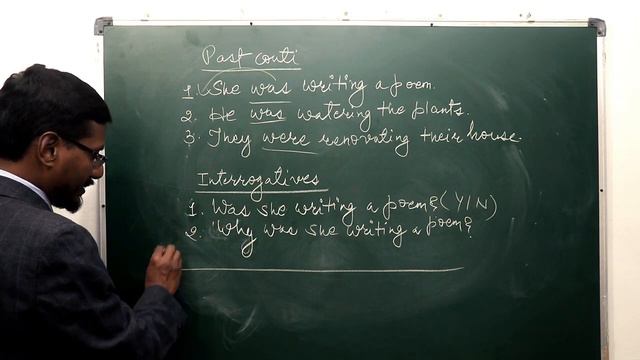 Past conti
1. She was writing a poem.
2. He was watering the plants.
3. They were renovating their house.
Interrogatives
1. Was she writing a poem? (Y/N)
2. Why was she writing a poem?